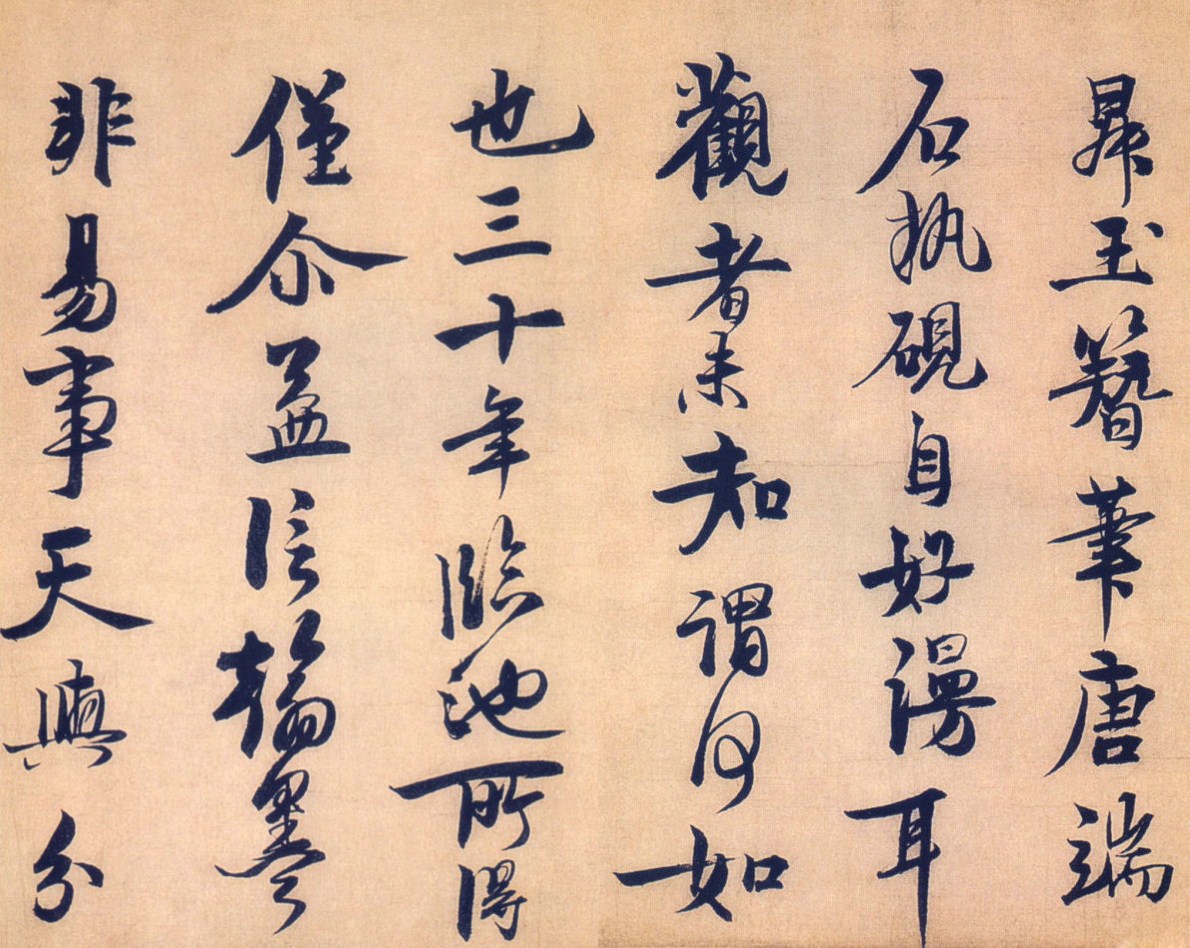 昇玉簪筆唐端
石執硯自好漫耳
觀者未知謂何如
也三十年臨池所得
僅尒益信翰墨
非易事天與分